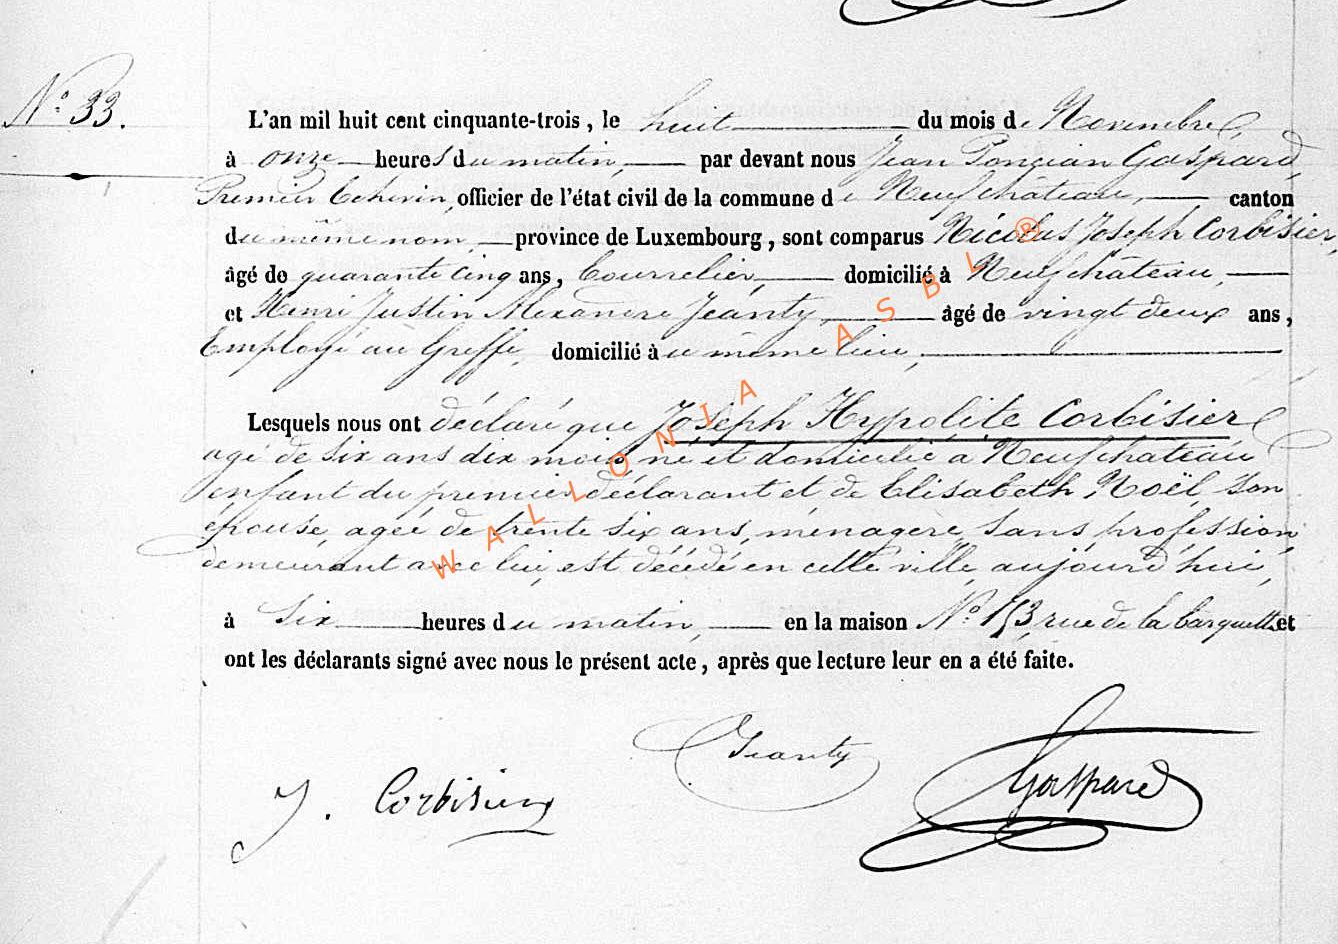 N.º 33.
L'an mil huit cent cinquante-trois, le huit du mois de Novembre,
à onze heures du matin, par devant nous Jean Poncian Gaspard,
Premier Echevin, officier de l'état civil de la commune de Neufchâteau, canton
du même nom, province de Luxembourg, sont comparus Nicolas Joseph Corbisier,
âgé de quarante cinq ans, Bourrelier, domicilié à Neufchâteau,
et Henri Justin Alexandre Jeanty, âgé de vingt deux ans,
Employé au Greffe, domicilié au même lieu,
Lesquels nous ont déclaré que Joseph Hypolite Corbisier
agé de six ans dix mois, né et domicilié à Neufchateau
enfant du premier déclarant et de Elisabeth Noël son
épouse, agée de trente six ans, ménagère, sans profession
demeurant avec lui, est décédé en cette ville, aujourd'hui,
à six heures du matin, en la maison N.º 153, rue de la barquette et
ont les déclarants signé avec nous le présent acte, après que lecture leur en a été faite.
Jeanty
J. Corbisier
Gaspard
WALLONIA ASBL ®